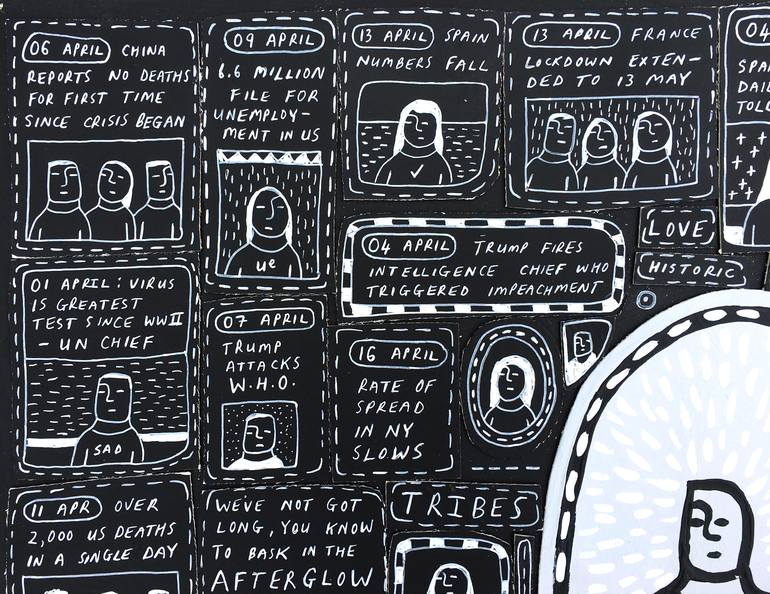 06 APRIL CHINA
REPORTS NO DEATHS
FOR FIRST TIME
SINCE CRISIS BEGAN
09 APRIL
6.6 MILLION
FILE FOR
UNEMPLOY-
MENT IN US
ue
13 APRIL SPAIN
NUMBERS FALL
13 APRIL FRANCE
LOCKDOWN EXTEN-
DED TO 13 MAY
04
SPA
DAIL
TOLL
04 APRIL TRUMP FIRES
INTELLIGENCE CHIEF WHO
TRIGGERED IMPEACHMENT
LOVE
HISTORIC
01 APRIL: VIRUS
IS GREATEST
TEST SINCE WWII
- UN CHIEF
SAD
07 APRIL
TRUMP
ATTACKS
W.H.O.
16 APRIL
RATE OF
SPREAD
IN NY
SLOWS
11 APR OVER
2,000 US DEATHS
IN A SINGLE DAY
WE'VE NOT GOT
LONG, YOU KNOW
TO BASK IN THE
AFTERGLOW
TRIBES